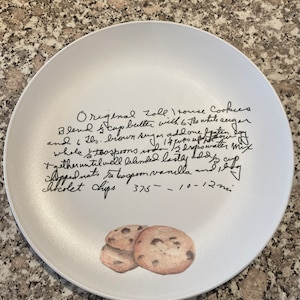 Original Toll House Cookies
Blend ½ cup butter with 6 tbl white sugar
and 6 tbl. brown sugar add one beaten egg
1 ⅛ cups flour
whole ½ teaspoons soda ½ drops water mix
together until well blended lastly add ½ cup
chopped nuts ½ teaspoon vanilla and 1 pkg
chocolet chips 375 - - 10-12 mi